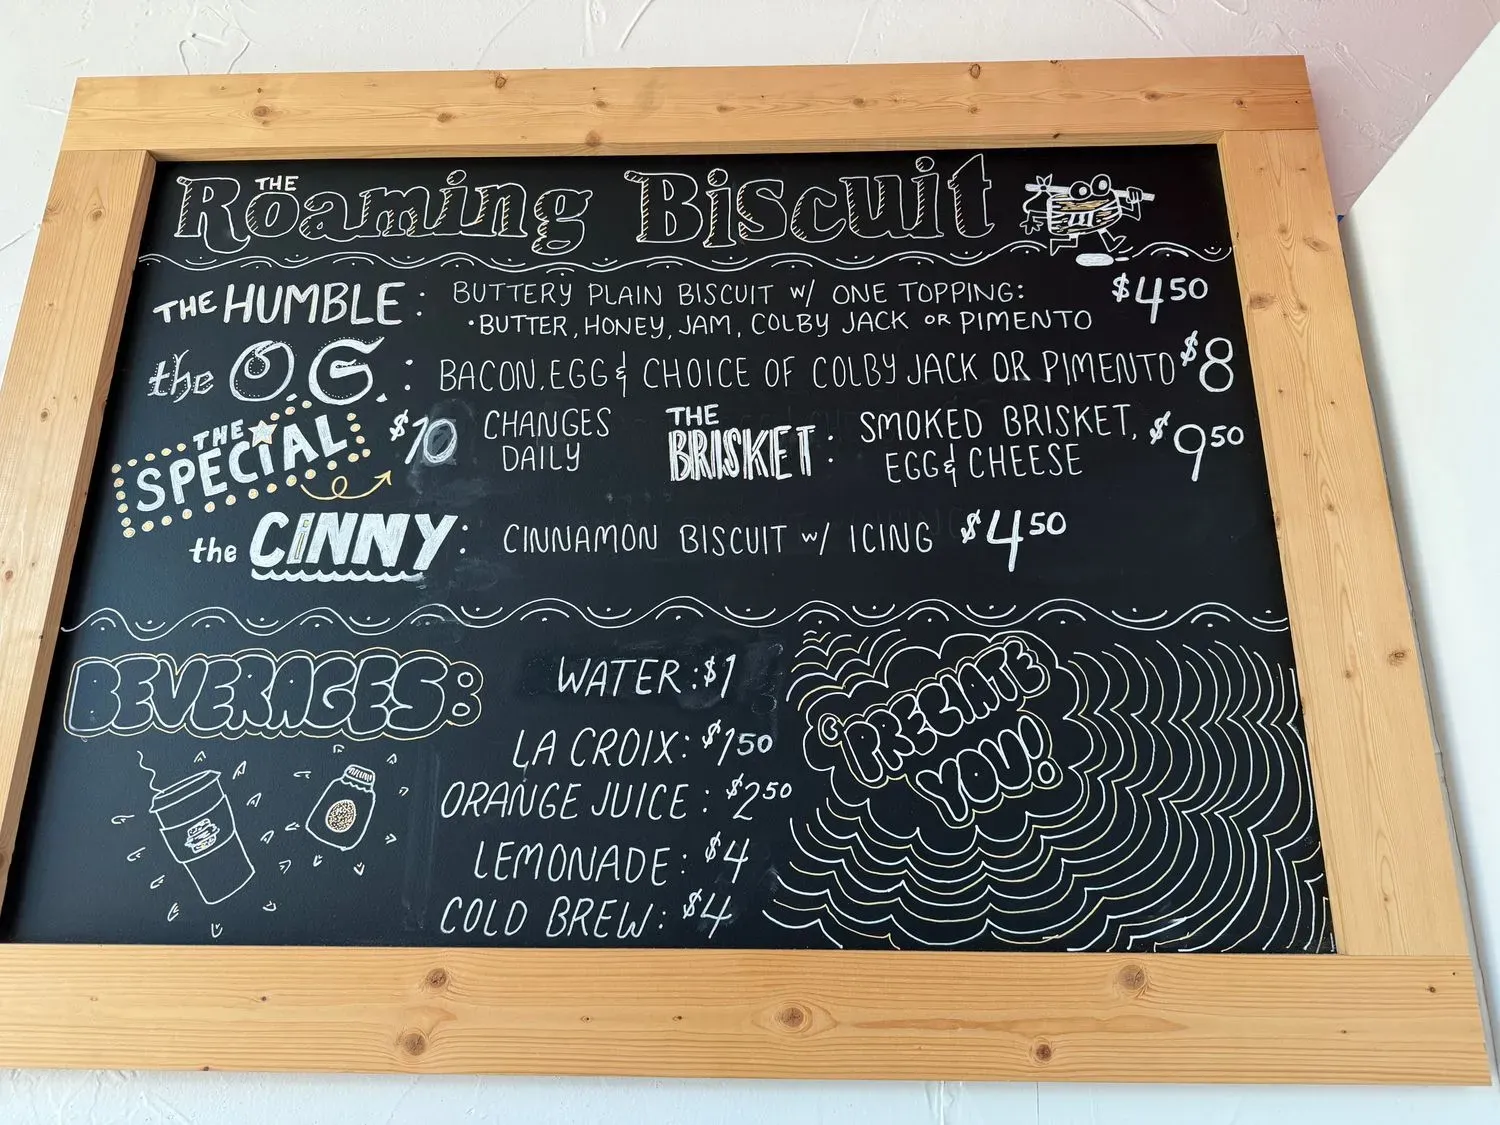 THE Roaming Biscuit
THE HUMBLE: BUTTERY PLAIN BISCUIT W/ ONE TOPPING: $4.50
• BUTTER, HONEY, JAM, COLBY JACK OR PIMENTO
the O.G.: BACON, EGG & CHOICE OF COLBY JACK OR PIMENTO $8
THE SPECIAL $10 CHANGES DAILY
THE BRISKET: SMOKED BRISKET, EGG & CHEESE $9.50
the CINNY: CINNAMON BISCUIT W/ ICING $4.50
BEVERAGES:
WATER: $1
LA CROIX: $1.50
ORANGE JUICE: $2.50
LEMONADE: $4
COLD BREW: $4
'PRECIATE
YOU!